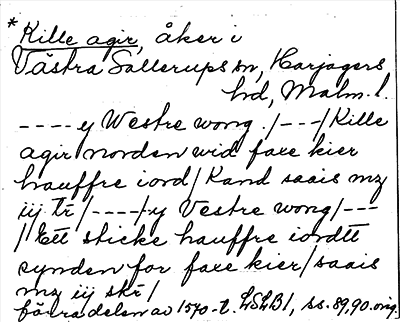 *Kille agir, åker i
Västra Sallerups sn, Harjagers
hd, Malm. l.
----y Westre wong ./---/Kille
agir norden wid faxe kier
hauffre iord/ Kand saais mz
iij tr/----/y Vestre wong/---
/Ett sticke hauffre iordtt
synden for faxe kier/saais
mz iij skr/
förra delen av 1570-t. LSLB1, ss. 89,90. orig.